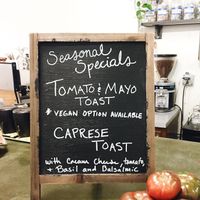 Seasonal
Specials
TOMATO & MAYO
TOAST
* VEGAN OPTION AVAILABLE
CAPRESE
TOAST
with Cream Cheese, tomato,
+ Basil and Balsalmic